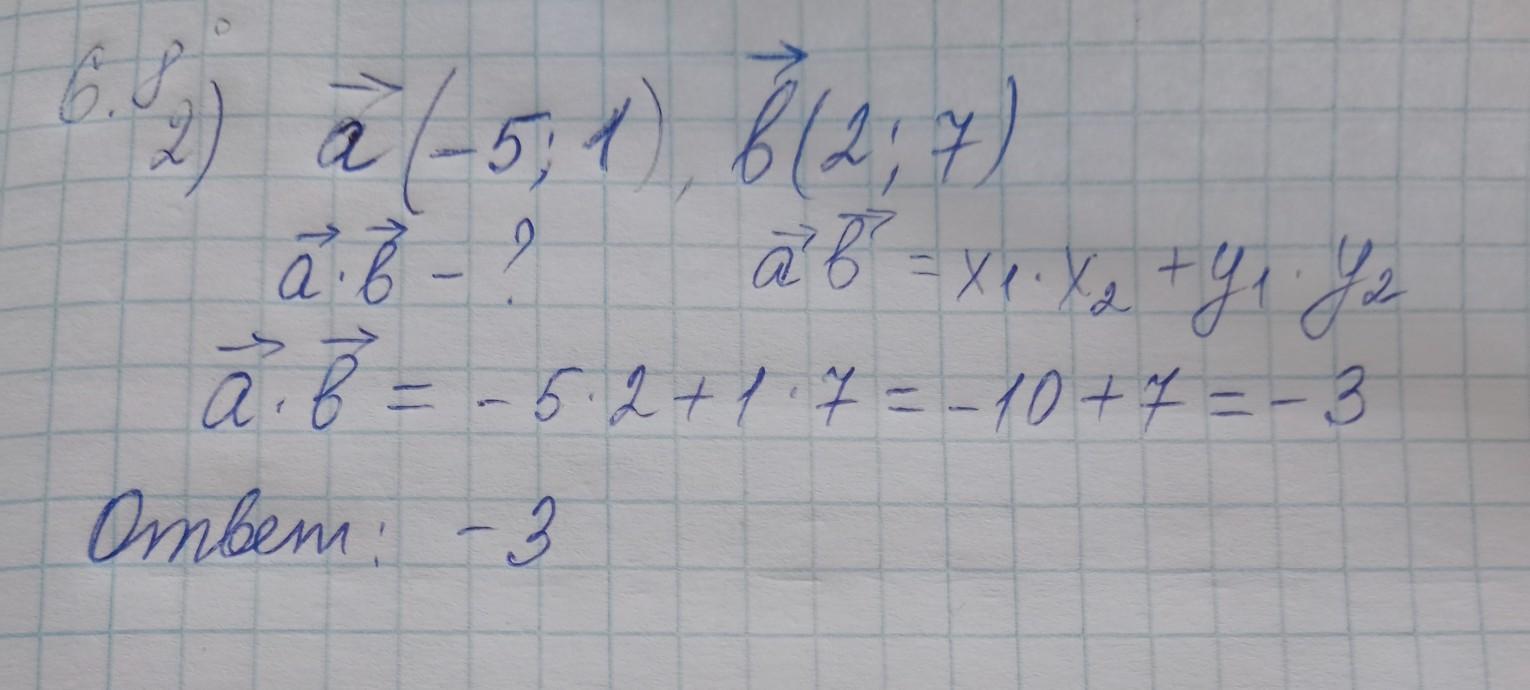 6.8°
2) a⃗(-5; 1), b⃗(2; 7)
a⃗·b⃗ - ? a⃗ b⃗ = x₁·x₂ + y₁·y₂
a⃗·b⃗ = -5·2+1·7 = -10+7 = -3
Ответ: -3